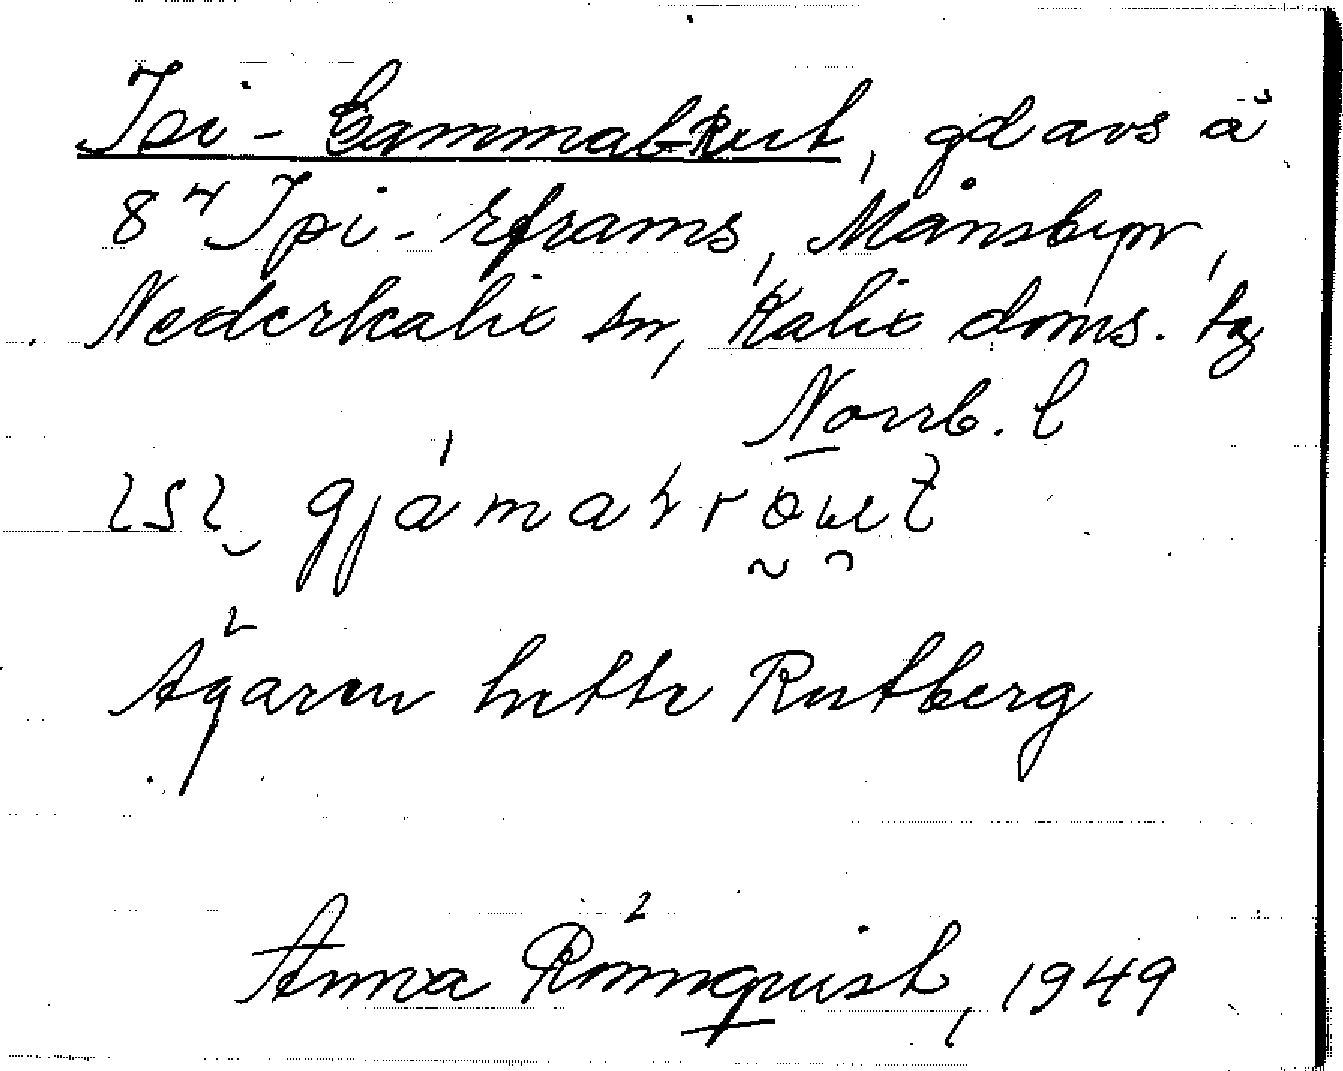 Ipi-GammalRut, gd avs å
8⁴ Ipi-Eframs, Månsbyn,
Nederkalix sn, Kalix doms. tg
Norrb. l
gjámat
Ägaren hette Rutberg
Anna Rönnquist, 1949